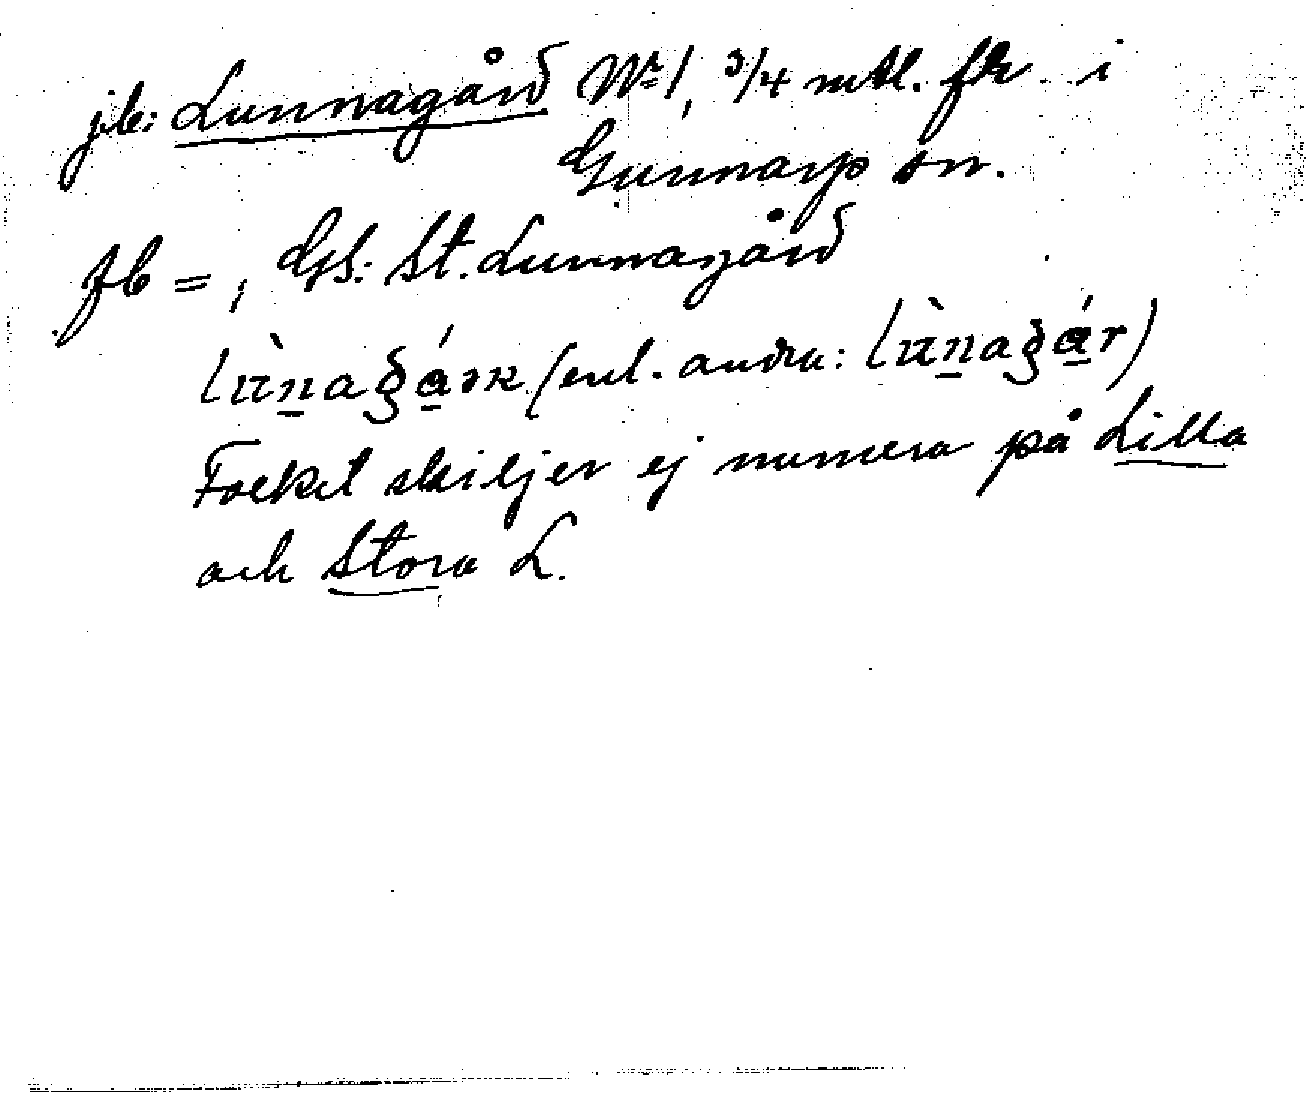 jb: Lunnagård Nr 1, 3/4 mtl. fr i
Gunnarp sn.
fb = , GS: St. Lunnagård
(enl. andra:
Folket skiljer ej numera på Lilla
och Stora L.